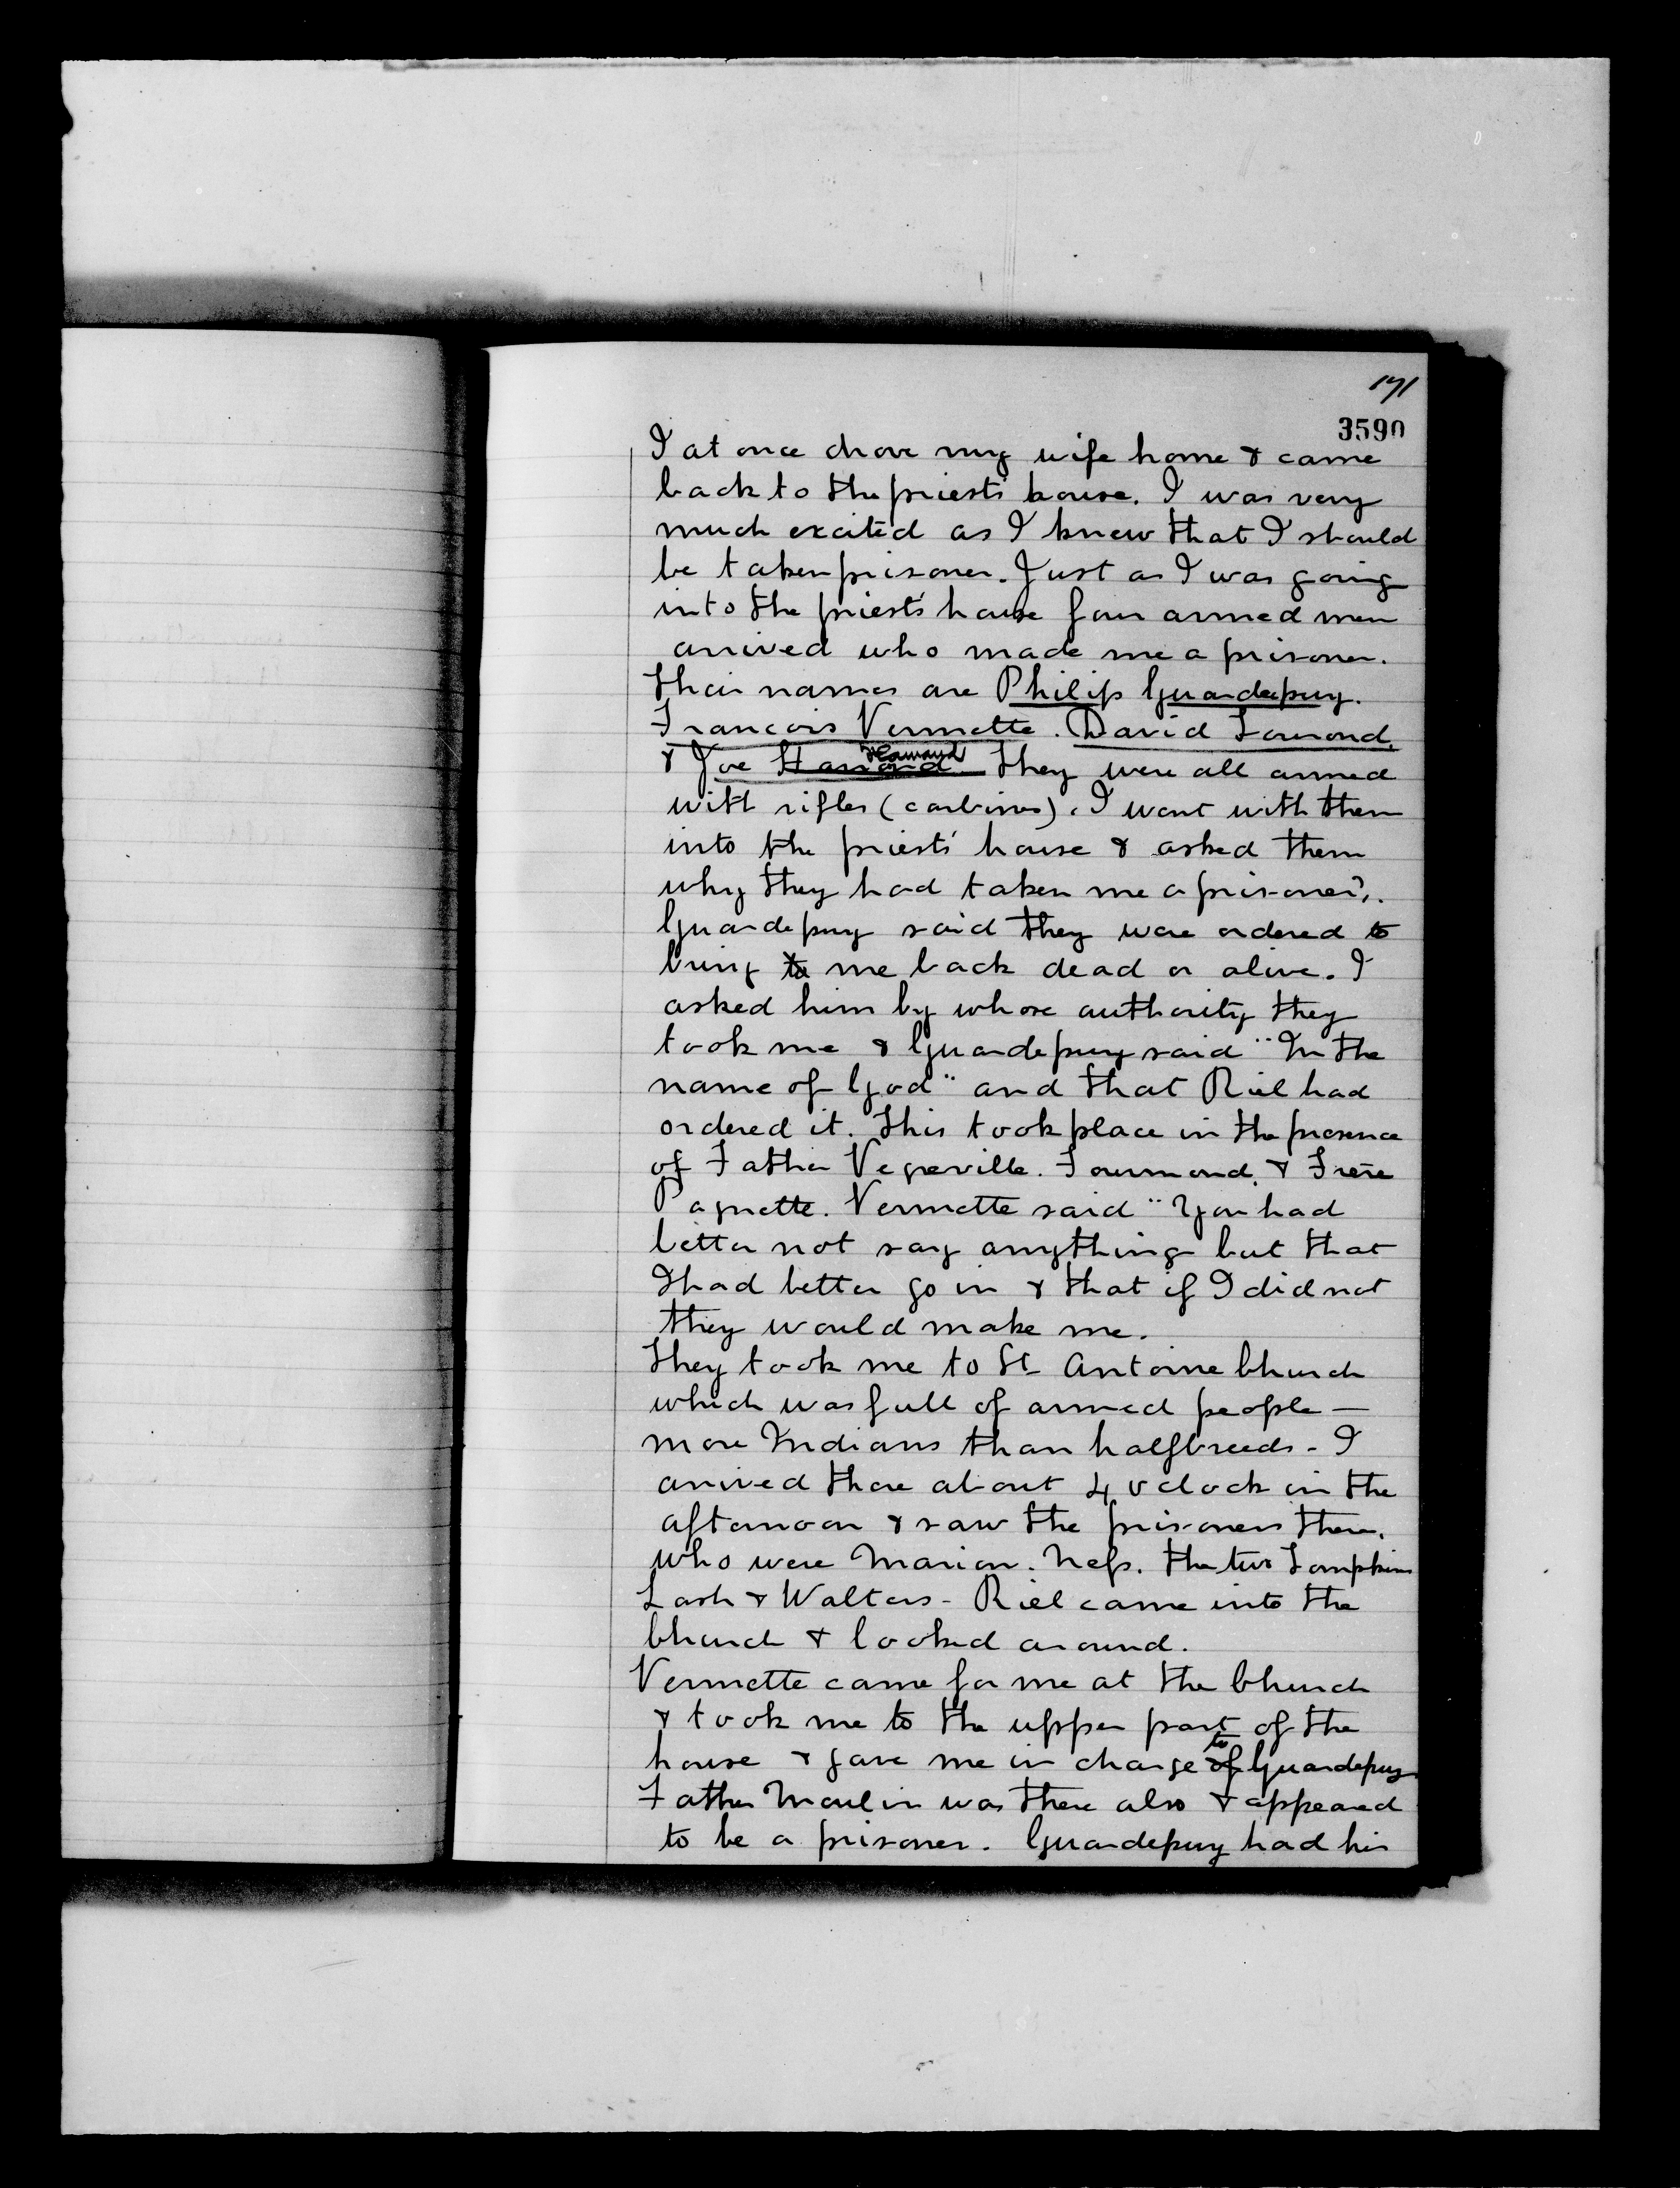 171
3590
I at once drove my wife home & came
back to the priests house. I was very
much excited as I knew that I should
be taken prisoner. Just as I was going
into the priest's house four armed men
arrived who made me a prisoner.
Their names are Philip Guardepuy.
Francois Vermette. David Tourond,
& Joe Hamand They were all armed
with rifles (carbines). I went with them
into the priests' house & asked them
why they had taken me a prisoner?.
Guardepuy said they were ordered to
bring me back dead or alive. I
asked him by whose authority they
took me & Guardepuy said "In the
name of God" and that Riel had
ordered it. This took place in the presence
of Father Vegreville. Fourmond. & Frere
Paquette. Vermette said "You had
better not say anything but that
I had better go in & that if I did not
they would make me.
They took me to St Antoine Church
which was full of armed people —
more Indians than halfbreeds - I
arrived there about 4 oclock in the
afternoon & saw the prisoners there.
who were Marion. Ness. the two Tompkins
Lash & Walters - Riel came into the
Church & looked around.
Vermette came for me at the Church
& took me to the upper part of the
house & gave me in charge to Guardepuy
Father Moulin was there also & appeared
to be a prisoner. Guardepuy had his